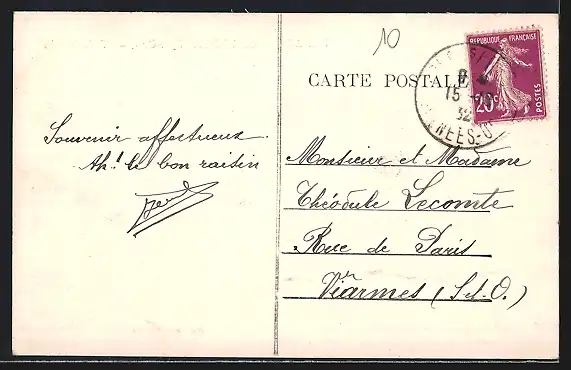 10
CARTE POSTALE
REPUBLIQUE FRANÇAISE
20c
POSTES
15 -10
32
Souvenir affectueux.
Ah! le bon raisin
Monsieur et Madame
Théodule Lecomte
Rue de Paris
Viarmes (S.et.O.)